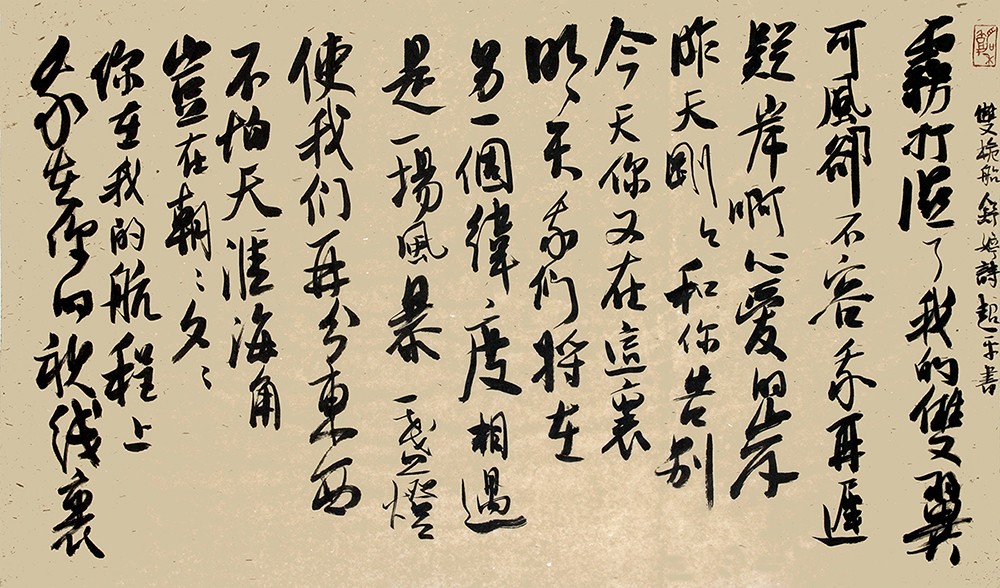 雙桅船 舒婷詩 超 書
霧打湿了我的雙翼
可風卻不容我再遲
疑岸啊心愛的岸
昨天剛々和你告别
今天你又在這裏
明天我们將在
另一個緯度相遇
是一場風暴一盏燈
使我们再分東西
不怕天涯海角
豈在朝々夕々
你在我的航程上
我在你的视线裏